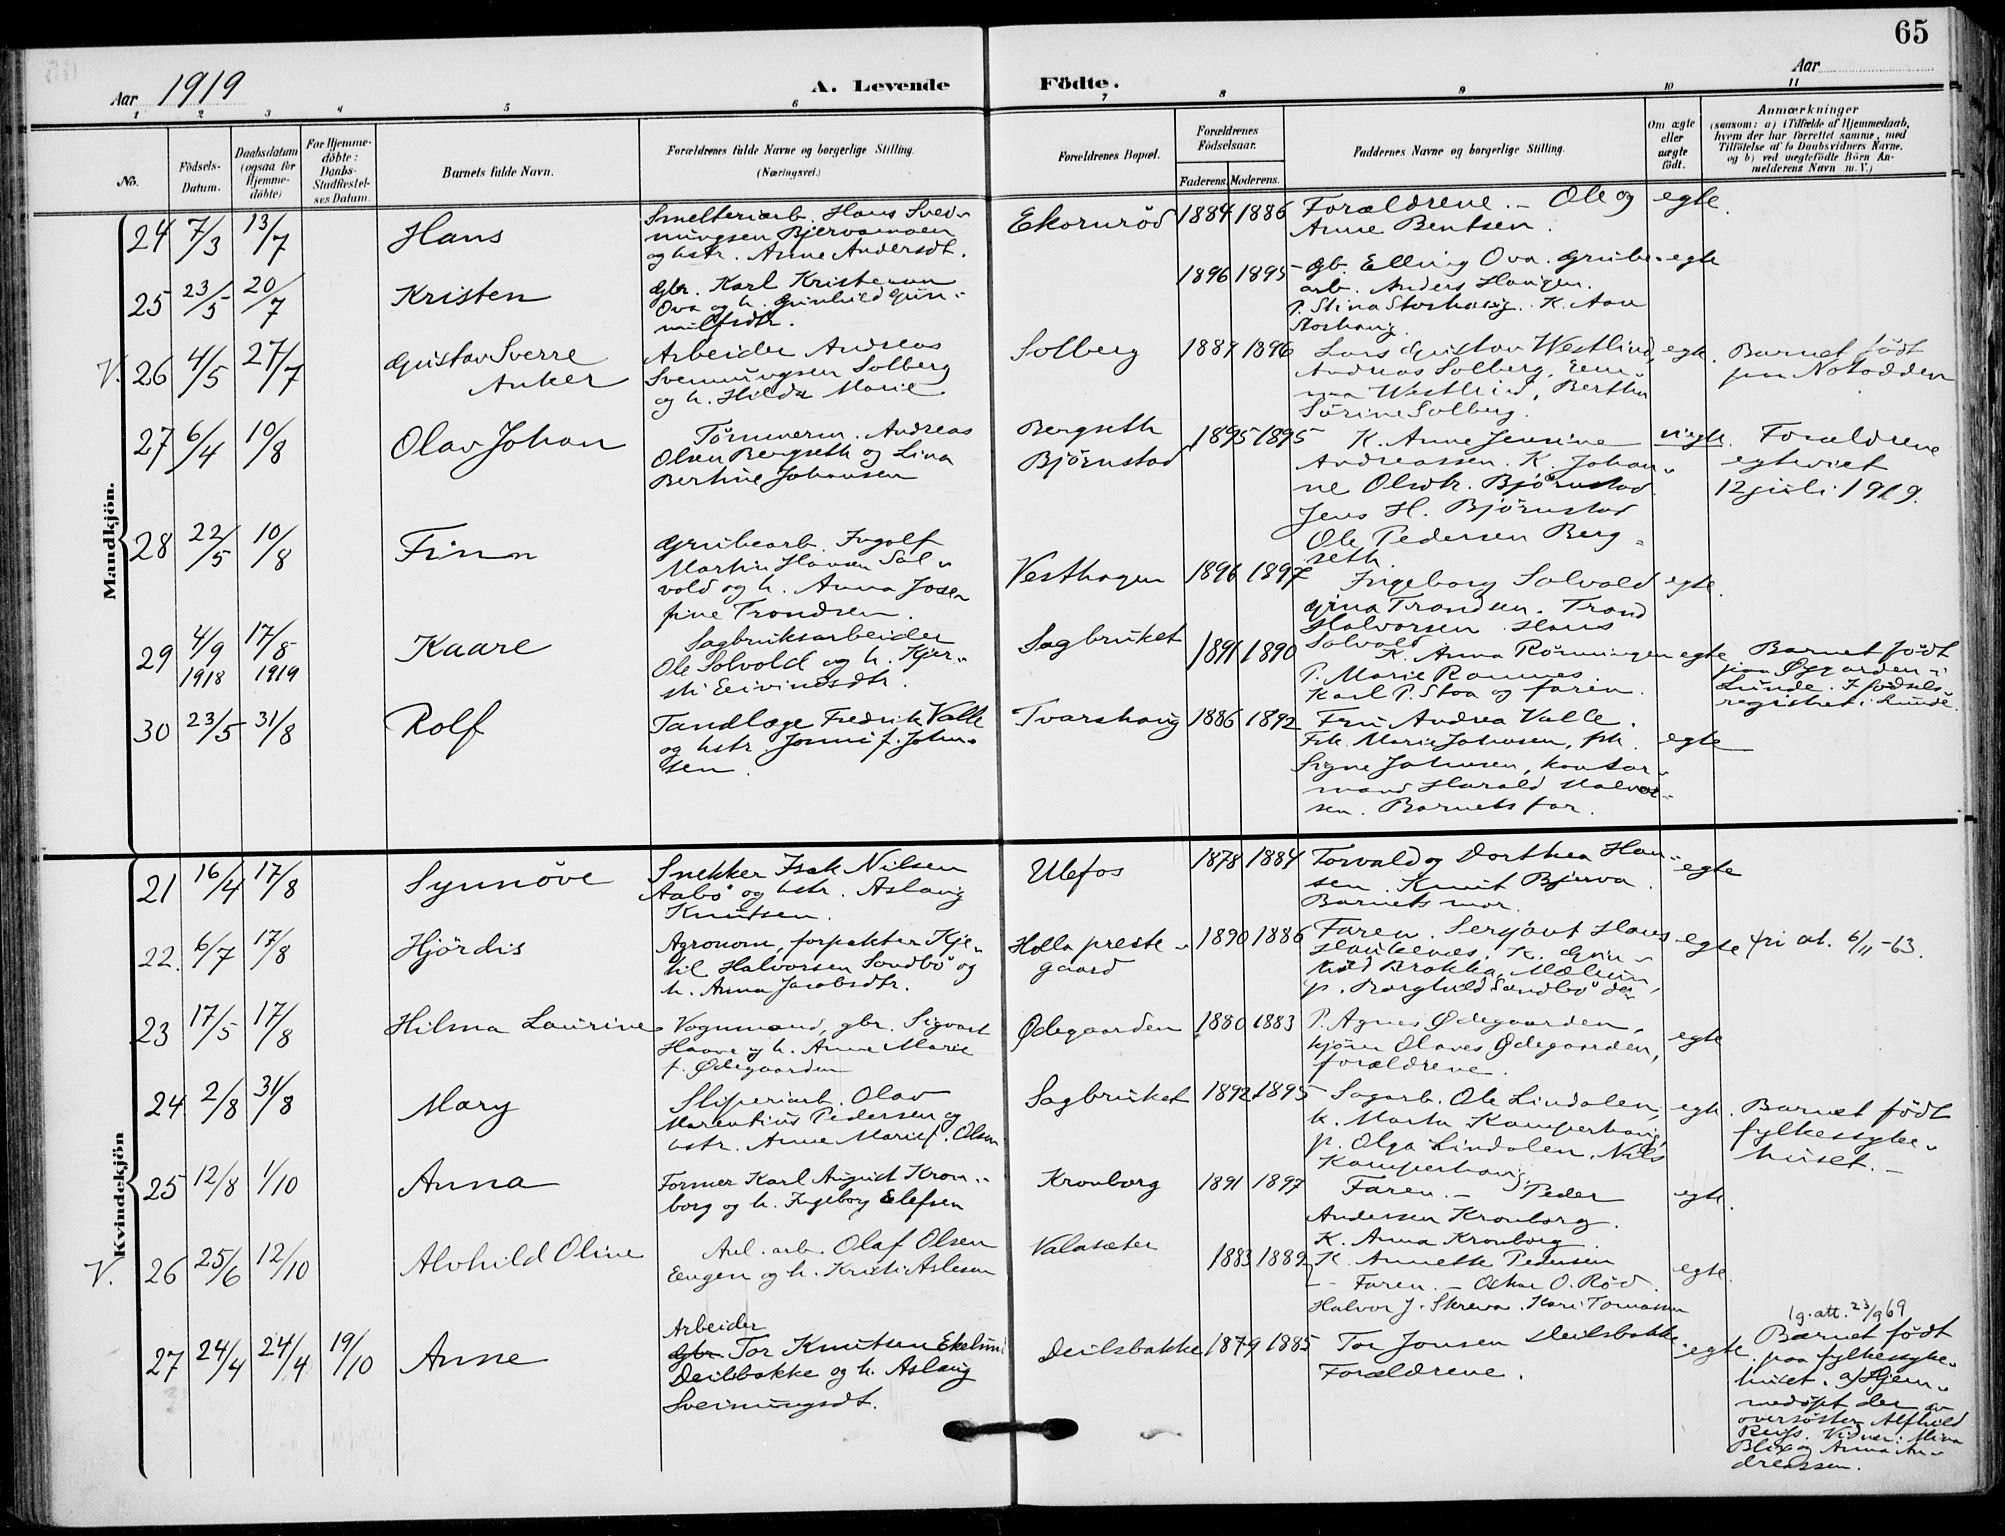 65
Aar 1919
A. Levende Födte.
Aar
1 2 3 4 5 6 7 8 9 10 11
No.
Födsels-
Datum.
Daabsdatum
(ogsaa for
Hjemme-
döbte)
For Hjemme-
döbte:
Daabs-
Stadfæstel-
ses Datum.
Barnets fulde Navn.
Forældrenes fulde Navne og borgerlige Stilling.
(Næringsvei.)
Forældrenes Bopæl.
Forældrenes
Födselsaar.
Faderens. Moderens.
Faddernes Navne og borgerlige Stilling.
Om ægte
eller
uægte
födt.
Anmærkninger
(saasom: a) i Tilfælde af Hjemmedaab,
hvem der har forrettet samme, med
Tilföielse af to Daabsvidners Navne.
og b) ved uægtefödte Börn An-
melderens Navn m. V.)
Mandkjön.
24 7/3 13/7 Hans
Smelteriarb. Hans Svei-
nungsen Bjervamoen
og hstr. Anne Andersdt.
Ekornröd 1884 1886
Forældrene. - Ole og
Anne Bentsen.
egte.
25 23/5 20/7 Kristen
Gbr. Karl Kristensen
Ova og h. Gunhild Gun-
nulfsdtr.
1896 1895
Gb. Elling Ova. Grube-
arb. Anders Haugen.
P. Stina Storhaug. K. Aan
Storhaug.
egte
V. 26 4/5 27/7 Gustav Sverre
Anker
Arbeider Andreas
Svennungsen Solberg
og h. Hilda Marie
Solberg 1889 1896
Lars Gustav Westlind,
Andreas Solberg, Em-
ma Westlind, Bertha
Sörine Solberg.
egte.
Barnet födt
paa Notodden
27 6/4 10/8 Olav Johan
Tömmerm. Andreas
Olsen Bergseth og Lina
Bertine Johansen
Bergseth
Björnstad
1895 1895
K. Anne Jensine
Andreassen. K. Johan-
ne Olsdtr. Björnstad.
Jens H. Björnstad
Ole Pedersen Berg-
seth.
uegte.
Forældrene
egteviet
12 juli 1919.
28 22/5 10/8 Finn
Grubearb. Ingolf
Martin Hansen Sol-
vold og h. Anna Jose-
fine Trondsen.
Vesthagen 1896 1897
Ingeborg Solvold
Gina Trondsen. Trond
Halvorsen. Hans
Solvold
egte.
29 4/9 1918 17/8 1919 Kaare
Sagbruksarbeider
Ole Solvold og h. Kjer-
sti Eivindsdtr.
Sagbruket 1891 1890
K. Anna Rönningen
P. Marie Romnes.
Karl P. Stoa og faren.
egte
Barnet födt
paa Øygarden i
Lunde. I födsels-
registret i Lunde.
30 23/5 31/8 Rolf
Tandlæge Fredrik Valle
og hstr. Jenni f. John-
sen.
Tvarshaug 1886 1892
Fru Andrea Valle.
Frk. Marie Johnsen, frk.
Signe Johnsen, kontor-
mand Harald Halvor-
sen. Barnets far.
egte
Kvindekjön
21 16/4 17/8 Synnöve
Snekker Isak Nilsen
Aabö og hstr. Aslaug
Knutsen.
Ulefos 1878 1884
Torvald og Dorthea Han-
sen. Knut Bjerva.
Barnets mor.
egte
22. 6/7 17/8 Hjördis
Agronom, forpakter Kje-
til Halvorsen Sandbö og
h. Anna Jacobsdtr.
Holla preste-
gaard
1890 1886
Faren. Sersjant Hans
Haukenes. K. Gun-
hild Brokka, Mælum,
p. Borghild Sandbö der
egte
fri at. 6/11-63.
23 17/5 17/8 Hilma Laurine
Vognmand, gbr. Sigvart
Haave og h. Anne Marie
f. Ødegaarden
Ødegaarden 1880 1883
P. Agnes Ødegaarden,
hjörn Olaves Ødegaarden,
forældrene.
egte
24 2/8 31/8 Mary
Sliperiarb. Olav
Marentius Pedersen og
hstr. Anne Marie f. Olsen
Sagbruket 1892 1895
Sagarb. Ole Lindalen,
k. Marta Kamperhaug,
p. Olga Lindalen, Nils
Kamperhaug,
egte.
Barnet födt
fylkessyke-
huset. -
25 12/8 1/10 Anna
Former Karl August Kron-
borg og h. Ingeborg Elefsen
Kronborg 1891 1897
Faren. - Peder
Andersen Kronborg.
K. Anna Kronborg.
egte.
V. 26 25/6 12/10 Alvhild Oline
Anl. arb. Olaf Olsen
Eugen og h. Kristi Aslesen
Valasæter 1883 1889
K. Annette Pedersen
- Faren. - Oskar O. Röd.
Halvor J. Skreva. Kari Tomassen
egte.
27 24/4 24/4 19/10 Anne
Arbeider
Gbr. Tor Knutsen Ekelund
Deilsbakke og h. Aslaug
Sveinungsdt.
Deilsbakke 1879 1885
Tor Jonsen Deilsbakke
Forældrene.
egte.
lg. att. 23/9 69
Barnet födt
paa fylkessyke-
huset. a) Hjem-
medöpt der av
oversöster Alfhild
Reiss. Vidner: Mina
Blix og Anna An-
dreassen.